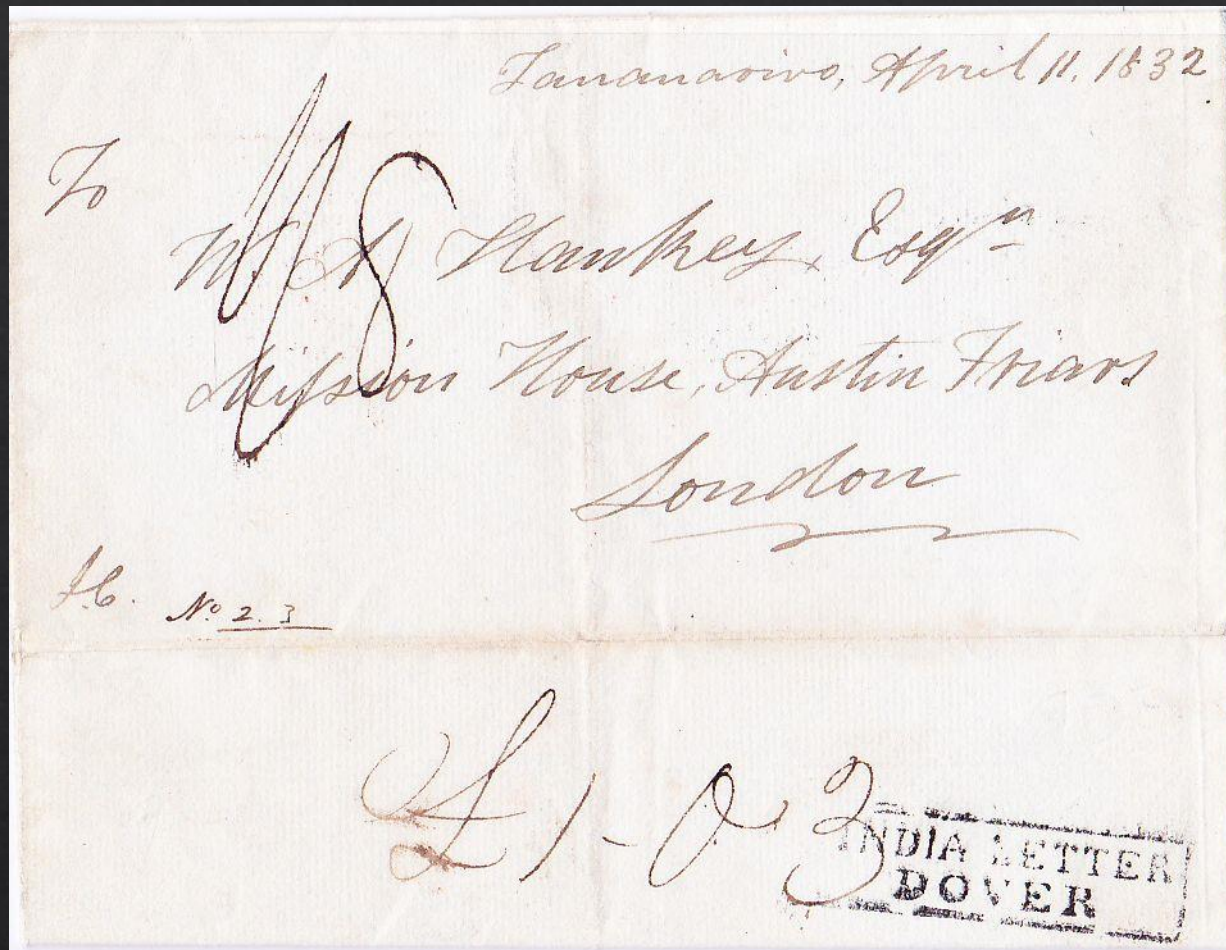 Tananarivo, April 11. 1832
To
W. A. Hankey, Esqr
Mission House, Austin Friars
London
No 2.3
£1-0-3
INDIA LETTER
DOVER